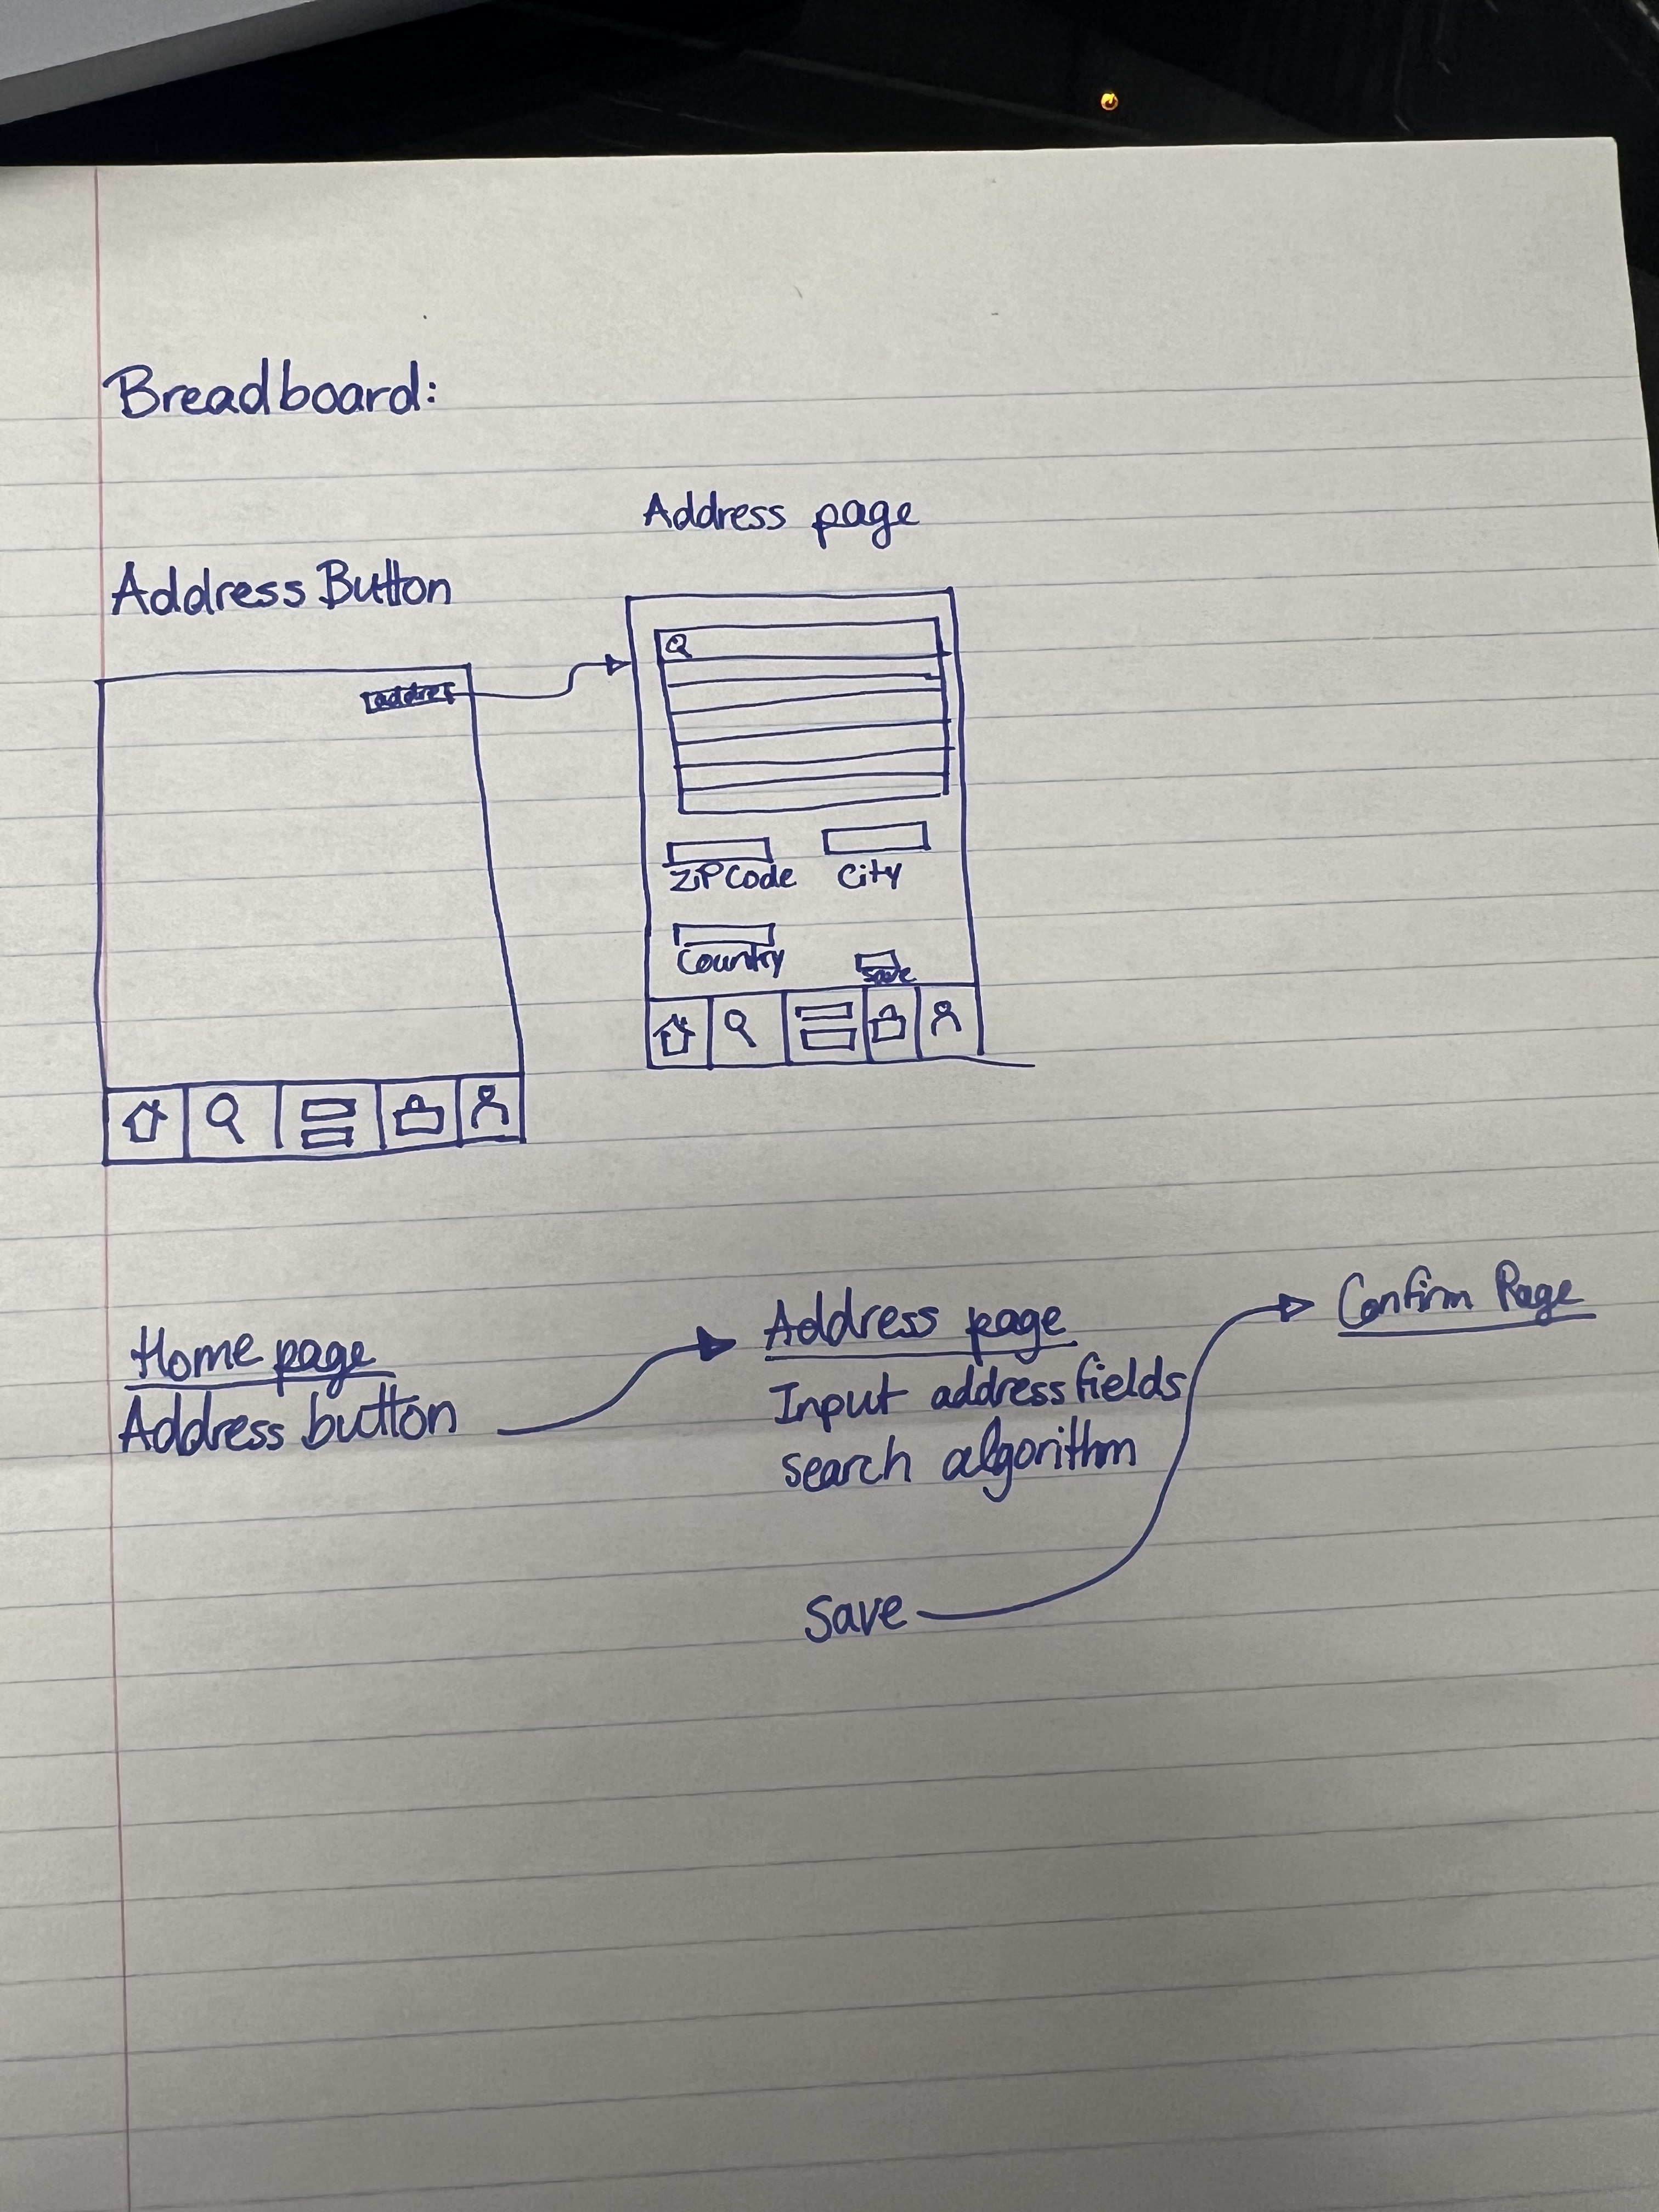 Breadboard:
Address page
Address Button
address
ZiPCode
City
Country
Save
Home page
Address button
Address page
Input address fields
search algorithm
Save
Confirm Page